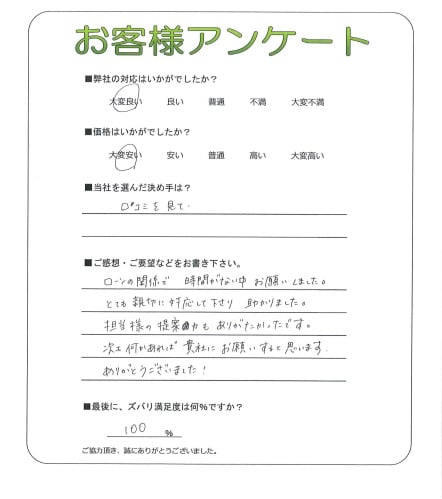 お客様アンケート
■弊社の対応はいかがでしたか？
大変良い 良い 普通 不満 大変不満
■価格はいかがでしたか？
大変安い 安い 普通 高い 大変高い
■当社を選んだ決め手は？
口コミを見て。
■ご感想・ご要望などをお書き下さい。
ローンの関係で 時間がない中 お願いしました。
とても親切に対応して下さり 助かりました。
担当様の提案力も ありがたかったです。
次も何かあれば 貴社に お願いすると思います。
ありがとうございました！
■最後に、ズバリ満足度は何%ですか？
100 %
ご協力頂き、誠にありがとうございました。